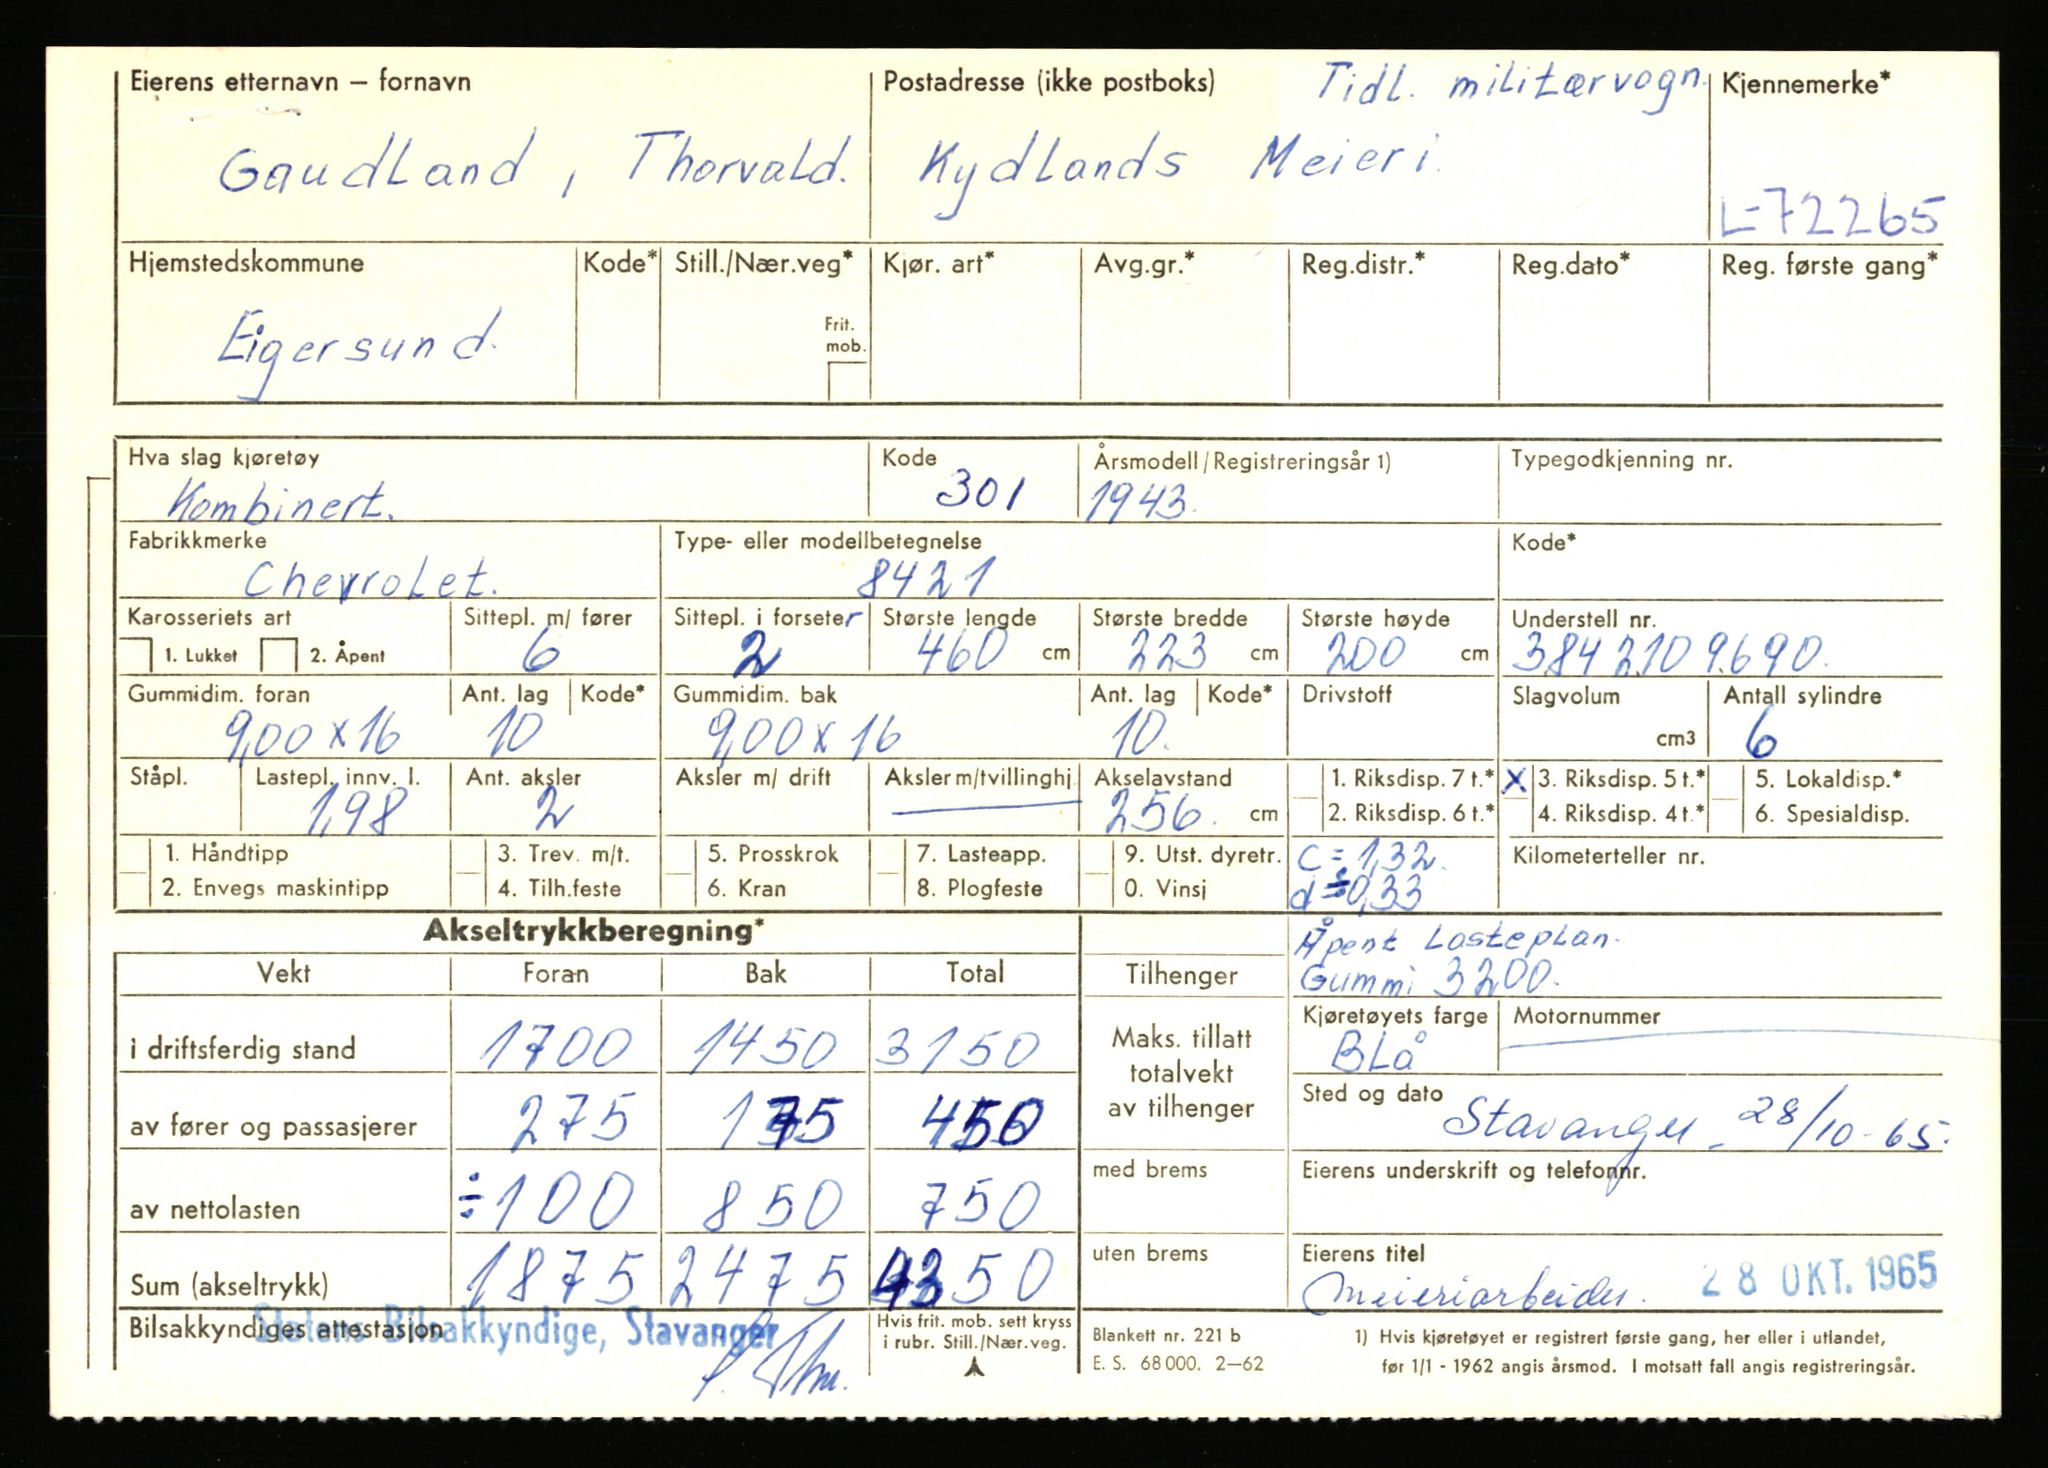 Eierens etternavn – fornavn
Gaudland, Thorvald.
Postadresse (ikke postboks)
Tidl. militærvogn.
Kydlands Meieri.
Kjennemerke*
L-72265
Hjemstedskommune
Eigersund.
Kode*
Still./Nær.veg*
Frit.
mob.
Kjør. art*
Avg.gr.*
Reg.distr.*
Reg.dato*
Reg. første gang*
Hva slag kjøretøy
Kombinert.
Kode
301
Årsmodell/Registreringsår 1)
1943.
Typegodkjenning nr.
Fabrikkmerke
Chevrolet.
Type- eller modellbetegnelse
8421
Kode*
Karosseriets art
1. Lukket 2. Åpent
Sittepl. m/ fører
6
Sittepl. i forseter
2
Største lengde
460 cm
Største bredde
223 cm
Største høyde
200 cm
Understell nr.
3842109690.
Gummidim. foran
9,00 x 16
Ant. lag
10
Kode*
Gummidim. bak
9,00 x 16
Ant. lag
10.
Kode*
Drivstoff
Slagvolum
cm3
Antall sylindre
6
Ståpl.
Lastepl. innv. l.
1,98
Ant. aksler
2
Aksler m/ drift
Aksler m/tvillinghj.
Akselavstand
256. cm
1. Riksdisp. 7 t.*
2. Riksdisp. 6 t.*
X 3. Riksdisp. 5 t.*
4. Riksdisp. 4 t.*
5. Lokaldisp.*
6. Spesialdisp.
1. Håndtipp
2. Envegs maskintipp
3. Trev. m/t.
4. Tilh.feste
5. Prosskrok
6. Kran
7. Lasteapp.
8. Plogfeste
9. Utst. dyretr.
0. Vinsj
C = 1,32.
d ÷ 0,33
Kilometerteller nr.
Akseltrykkberegning*
Åpent Lasteplan.
Gummi 3200.
Vekt Foran Bak Total
Tilhenger
i driftsferdig stand 1700 1450 3150
av fører og passasjerer 275 175 450
av nettolasten ÷100 850 750
Sum (akseltrykk) 1875 2475 4350
Maks. tillatt
totalvekt
av tilhenger
med brems
uten brems
Kjøretøyets farge
Blå
Motornummer
Sted og dato
Stavanger - 28/10-65.
Eierens underskrift og telefonnr.
Eierens titel
Meieriarbeider.
28 OKT. 1965
Bilsakkyndiges attestasjon
Statens Bilsakkyndige, Stavanger
Hvis frit. mob. sett kryss
i rubr. Still./Nær.veg.
Blankett nr. 221 b
E. S. 68 000. 2–62
1) Hvis kjøretøyet er registrert første gang, her eller i utlandet,
før 1/1 - 1962 angis årsmod. I motsatt fall angis registreringsår.